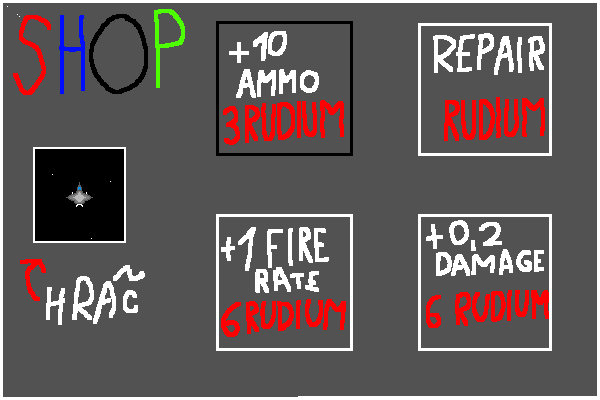 SHOP
+10
AMMO
3 RUDIUM
REPAIR
RUDIUM
HRAČ
+1 FIRE
RATE
6 RUDIUM
+0,2
DAMAGE
6 RUDIUM